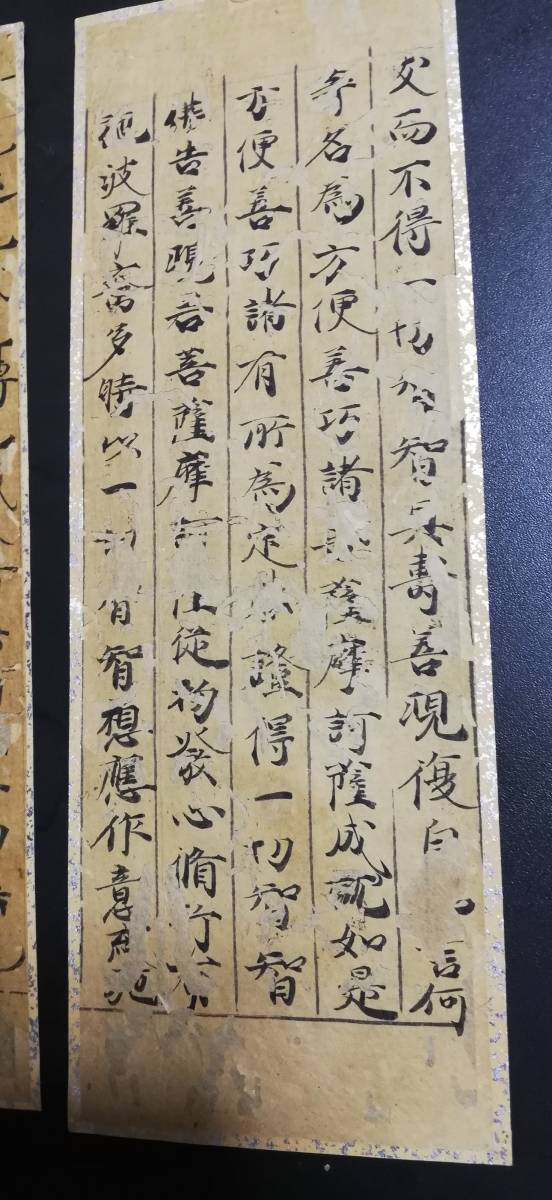 支而不得一切智智具壽善現復白言何
等名為方便善巧諸菩薩摩訶薩成就如是
方便善巧諸有所為定能證得一切智智
佛告善現若菩薩摩訶從初發心脩行布
施波羅蜜多時以一切智智想應作意布施